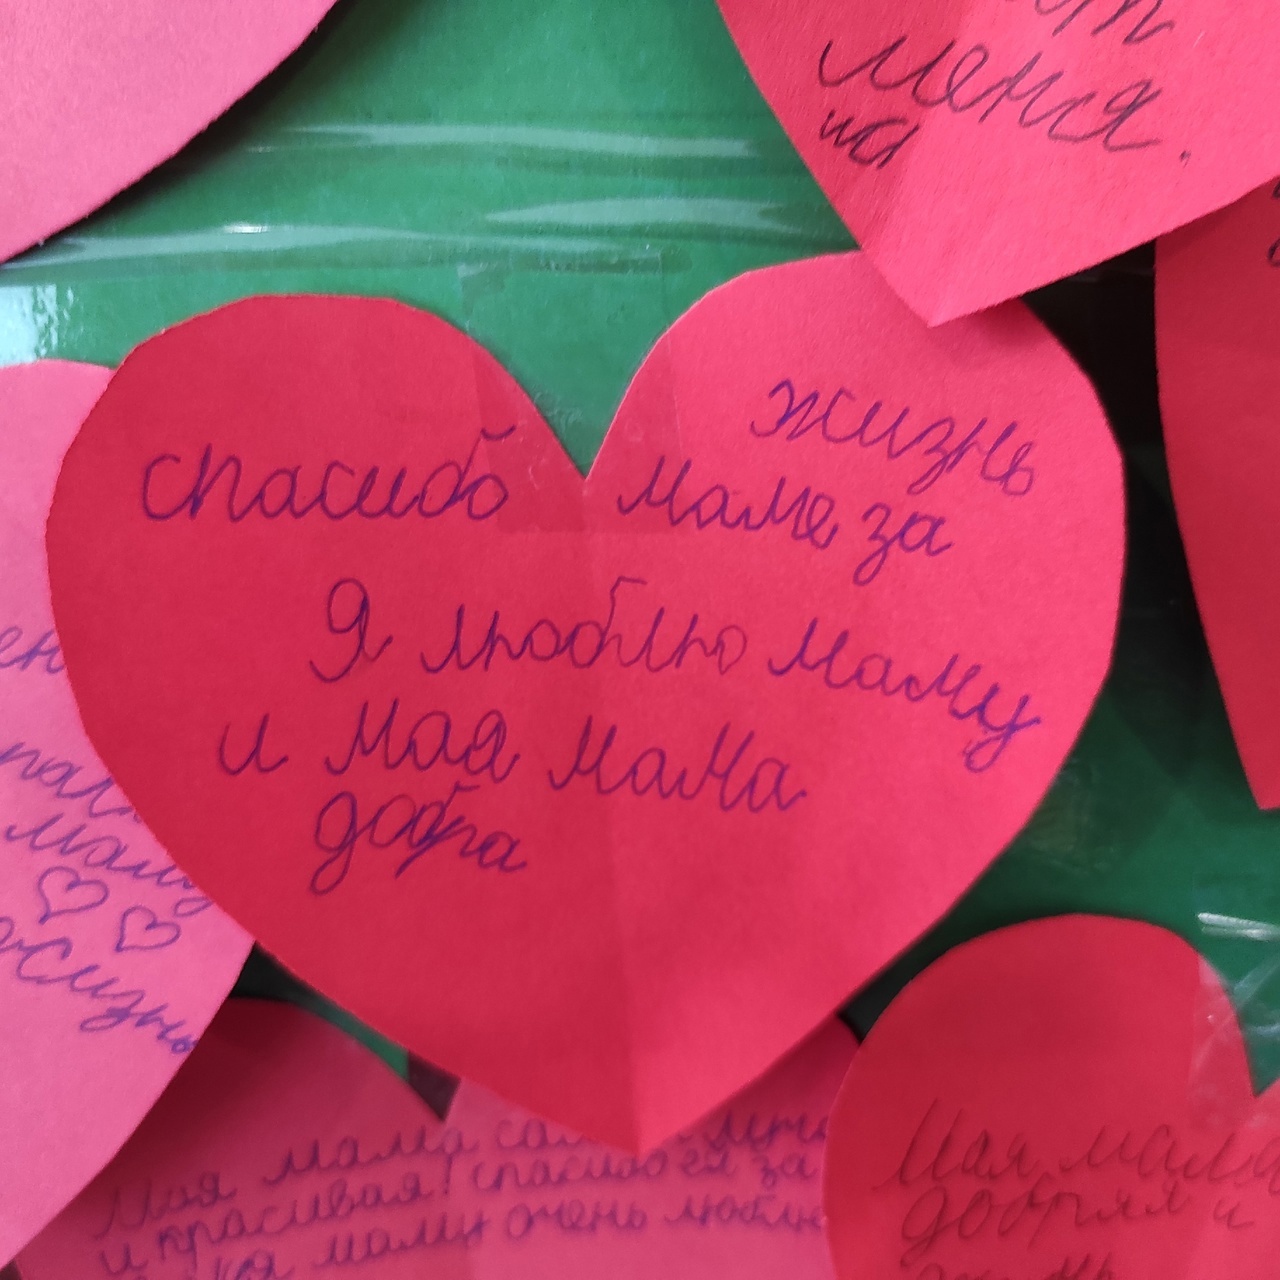 меня.
жизнь
спасибо маме за
Я люблю маму
и мая мама
добра
маму
жизнь
Моя мама
и красивая! спасибо ей за
маму очень люблю
Моя мама
добрая и